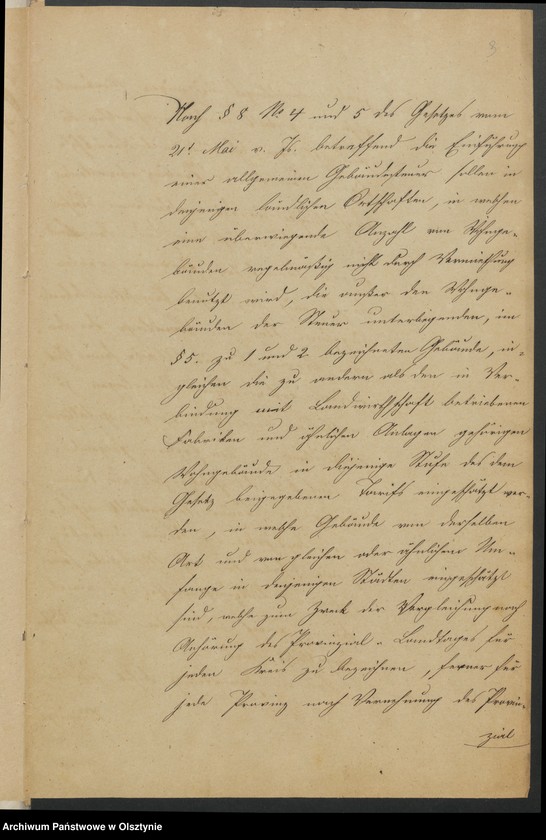 8
Nach § 8 No 4 und 5 des Gesetzes vom
21t Mai v. Js. betreffend die Einführung
einer allgemeinen Gebäudesteuer sollen in
denjenigen ländlichen Ortschaften, in welchen
eine überwiegende Anzahl von Wohnge-
bäuden regelmäßig nicht durch Vermiethung
benutzt wird, die außer den Wohnge-
bäuden der Steuer unterliegenden, im
§ 5. zu 1 und 2 bezeichneten Gebäude, in-
gleichen die zu andern als den in Ver-
bindung mit Landwirthschaft betriebenen
Fabriken und ähnlichen Anlagen gehörigen
Wohngebäude in diejenige Stufe des dem
Gesetz beigegebenen Tarifs eingeschätzt wer-
den, in welche Gebäude von derselben
Art und von gleichem oder ähnlichem Um-
fange in denjenigen Städten eingeschätzt
sind, welche zum Zweck der Vergleichung nach
Anhörung des Provinzial-Landtages für
jeden Kreis zu bezeichnen, ferner für
jede Provinz nach Vernehmung des Provin-
zial
Archiwum Państwowe w Olsztynie